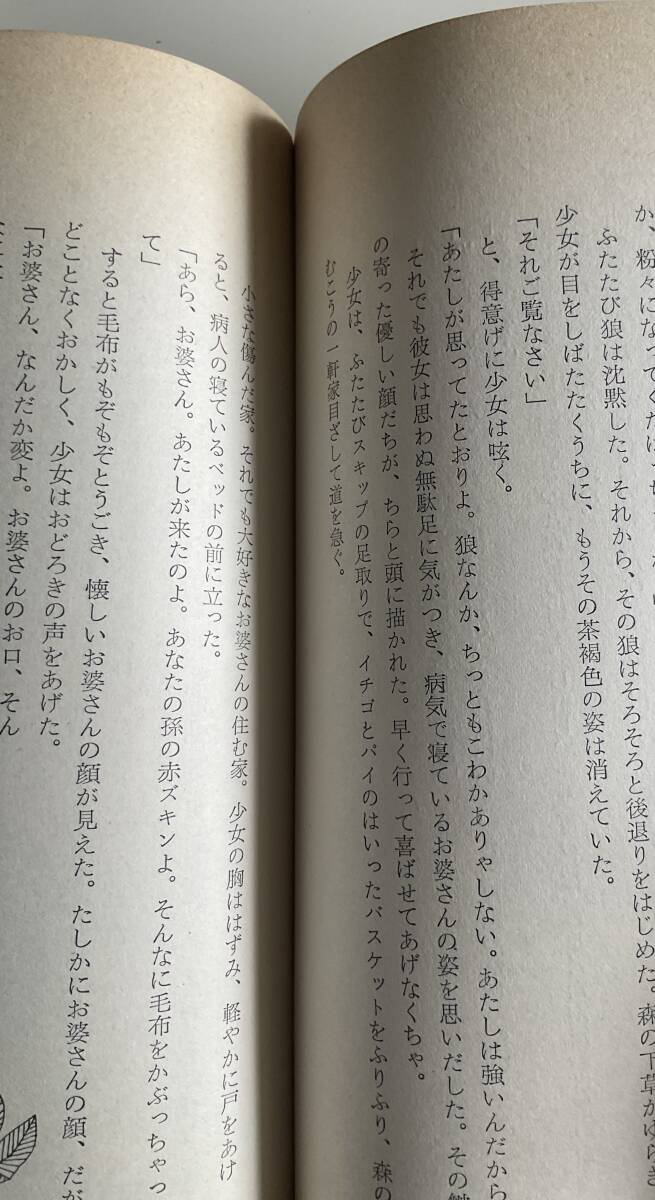 か、粉々になってくだ
ふたたび狼は沈黙した。それから、その狼はそろそろと後退りをはじめた。森の下草がゆらぎ
少女が目をしばたたくうちに、もうその茶褐色の姿は消えていた。
「それご覧なさい」
と、得意げに少女は呟く。
「あたしが思ってたとおりよ。狼なんか、ちっともこわかありゃしない。あたしは強いんだから
それでも彼女は思わぬ無駄足に気がつき、病気で寝ているお婆さんの姿を思いだした。その皺
の寄った優しい顔だちが、ちらと頭に描かれた。早く行って喜ばせてあげなくちゃ。
少女は、ふたたびスキップの足取りで、イチゴとパイのはいったバスケットをふりふり、森の
むこうの一軒家目ざして道を急ぐ。
小さな傷んだ家。それでも大好きなお婆さんの住む家。少女の胸ははずみ、軽やかに戸をあけ
ると、病人の寝ているベッドの前に立った。
「あら、お婆さん。あたしが来たのよ。あなたの孫の赤ズキンよ。そんなに毛布をかぶっちゃっ
て」
すると毛布がもぞもぞとうごき、懐しいお婆さんの顔が見えた。たしかにお婆さんの顔、だが
どことなくおかしく、少女はおどろきの声をあげた。
「お婆さん、なんだか変よ。お婆さんのお口、そん